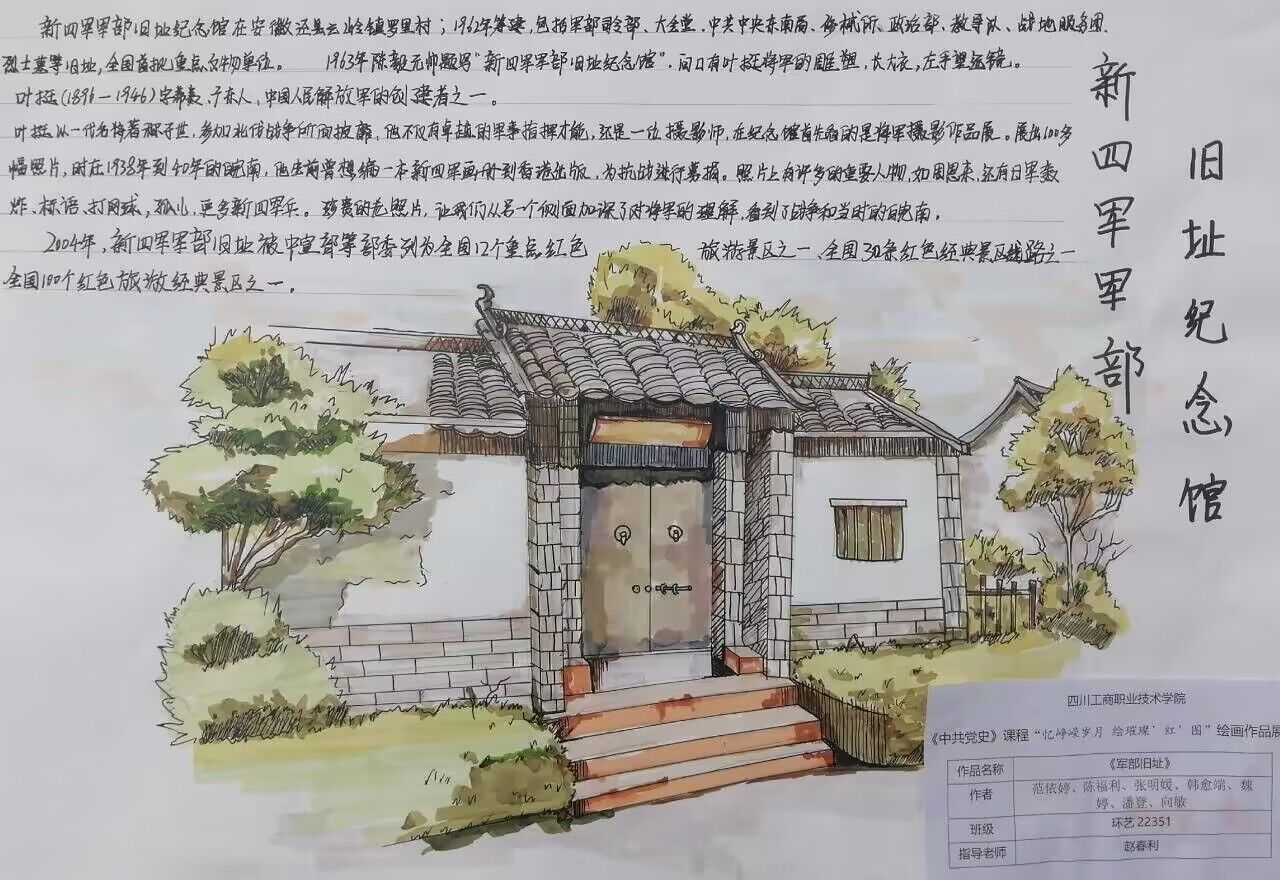 新四军军部旧址纪念馆在安徽泾县云岭镇罗里村；1962年筹建，包括军部司令部、大会堂、中共中央东南局、修械所、政治部、教导队、战地服务团、
烈士墓等旧址，全国首批重点文物单位。 1963年陈毅元帅题写“新四军军部旧址纪念馆”。门口有叶挺将军的雕塑，长大衣，左手望远镜。
叶挺(1896-1946)字希夷，广东人，中国人民解放军的创建者之一。
叶挺以一代名将著称于世，参加北伐战争所向披靡，他不仅有卓越的军事指挥才能，还是一位摄影师，在纪念馆首先看的是将军摄影作品展。展出100多
幅照片，时在1938年到40年的皖南，他生前曾想编一本新四军画册到香港出版，为抗战进行募捐。照片上有许多的重要人物，如周恩来，还有日军轰
炸、标语、打网球，孤儿，更多新四军兵。珍贵的老照片，让我们从另一个侧面加深了对将军的理解，看到了战争和当时的皖南。
2004年，新四军军部旧址被中宣部等部委列为全国12个重点红色 旅游景区之一、全国30条红色经典景区线路之一
全国100个红色旅游经典景区之一。
新四军军部
旧址纪念馆
四川工商职业技术学院
《中共党史》课程“忆峥嵘岁月 绘璀璨‘红’图”绘画作品展
作品名称 《军部旧址》
作者 范依婷、陈福利、张明媛、韩愈端、魏
婷、潘登、向敏
班级 环艺 22351
指导老师 赵春利